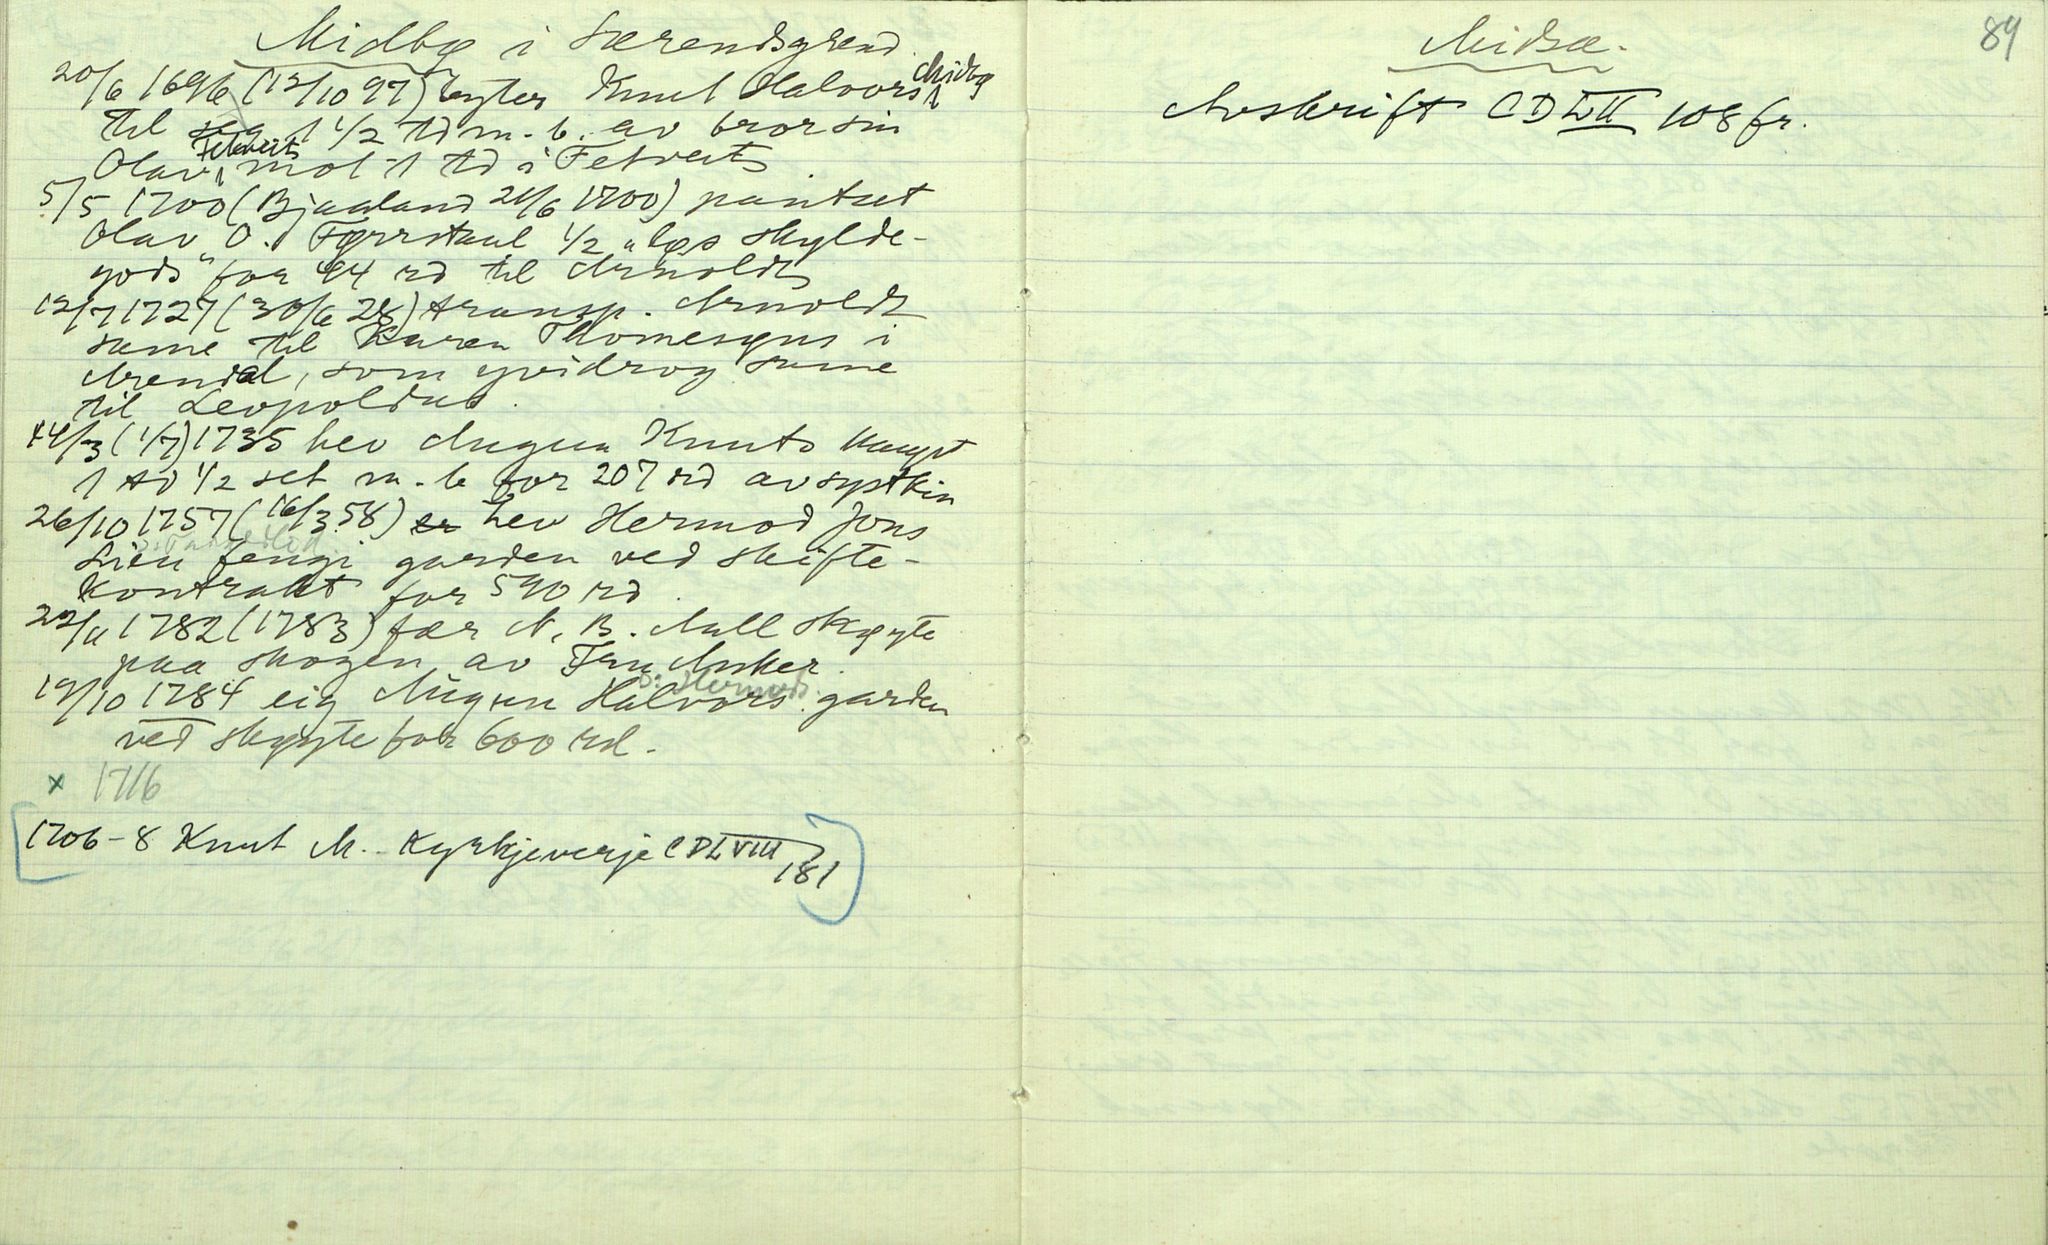 Midbø i Særensgrend
20/6 1696 (12/10 97) byter Knut Halvors Midbø
til seg 1 1/2 td m. b. av bror sin
Olav Felveits mot 1 td i Fetveit
5/5 1700 (Bjaaland 21/6 1700) pantset
Olav O. Førrstaul 1/2 "løs skylde-
gods" for 44 rd til Arnoldt
12/7 1727 (30/6 28) transp. Arnoldt
same til Karen Thomesøns i
Arendal, som yvidrog same
til Leopoldus.
14/3 (1/7) 1735 hev Augun Knuts kaupt
1 td 1/2 set m. b for 207 rd av systkin
26/10 1757 (16/3 58) er hev Hermod Jons
Lien fengi garden ved skifte-
kontrakt for 590 rd.
22/11 1782 (1783) fær N. B. Aall skøyte
paa skogen av Fru Anker.
19/10 1784 eig Augun Halvors. garden
s: Hermods.
ved skøyte for 600 rd.
x 1716
[1706-8 Knut M. Kyrkjeverje CDLVIII 181]
89
Midbø.
Avskrift CDLII 108 fr.